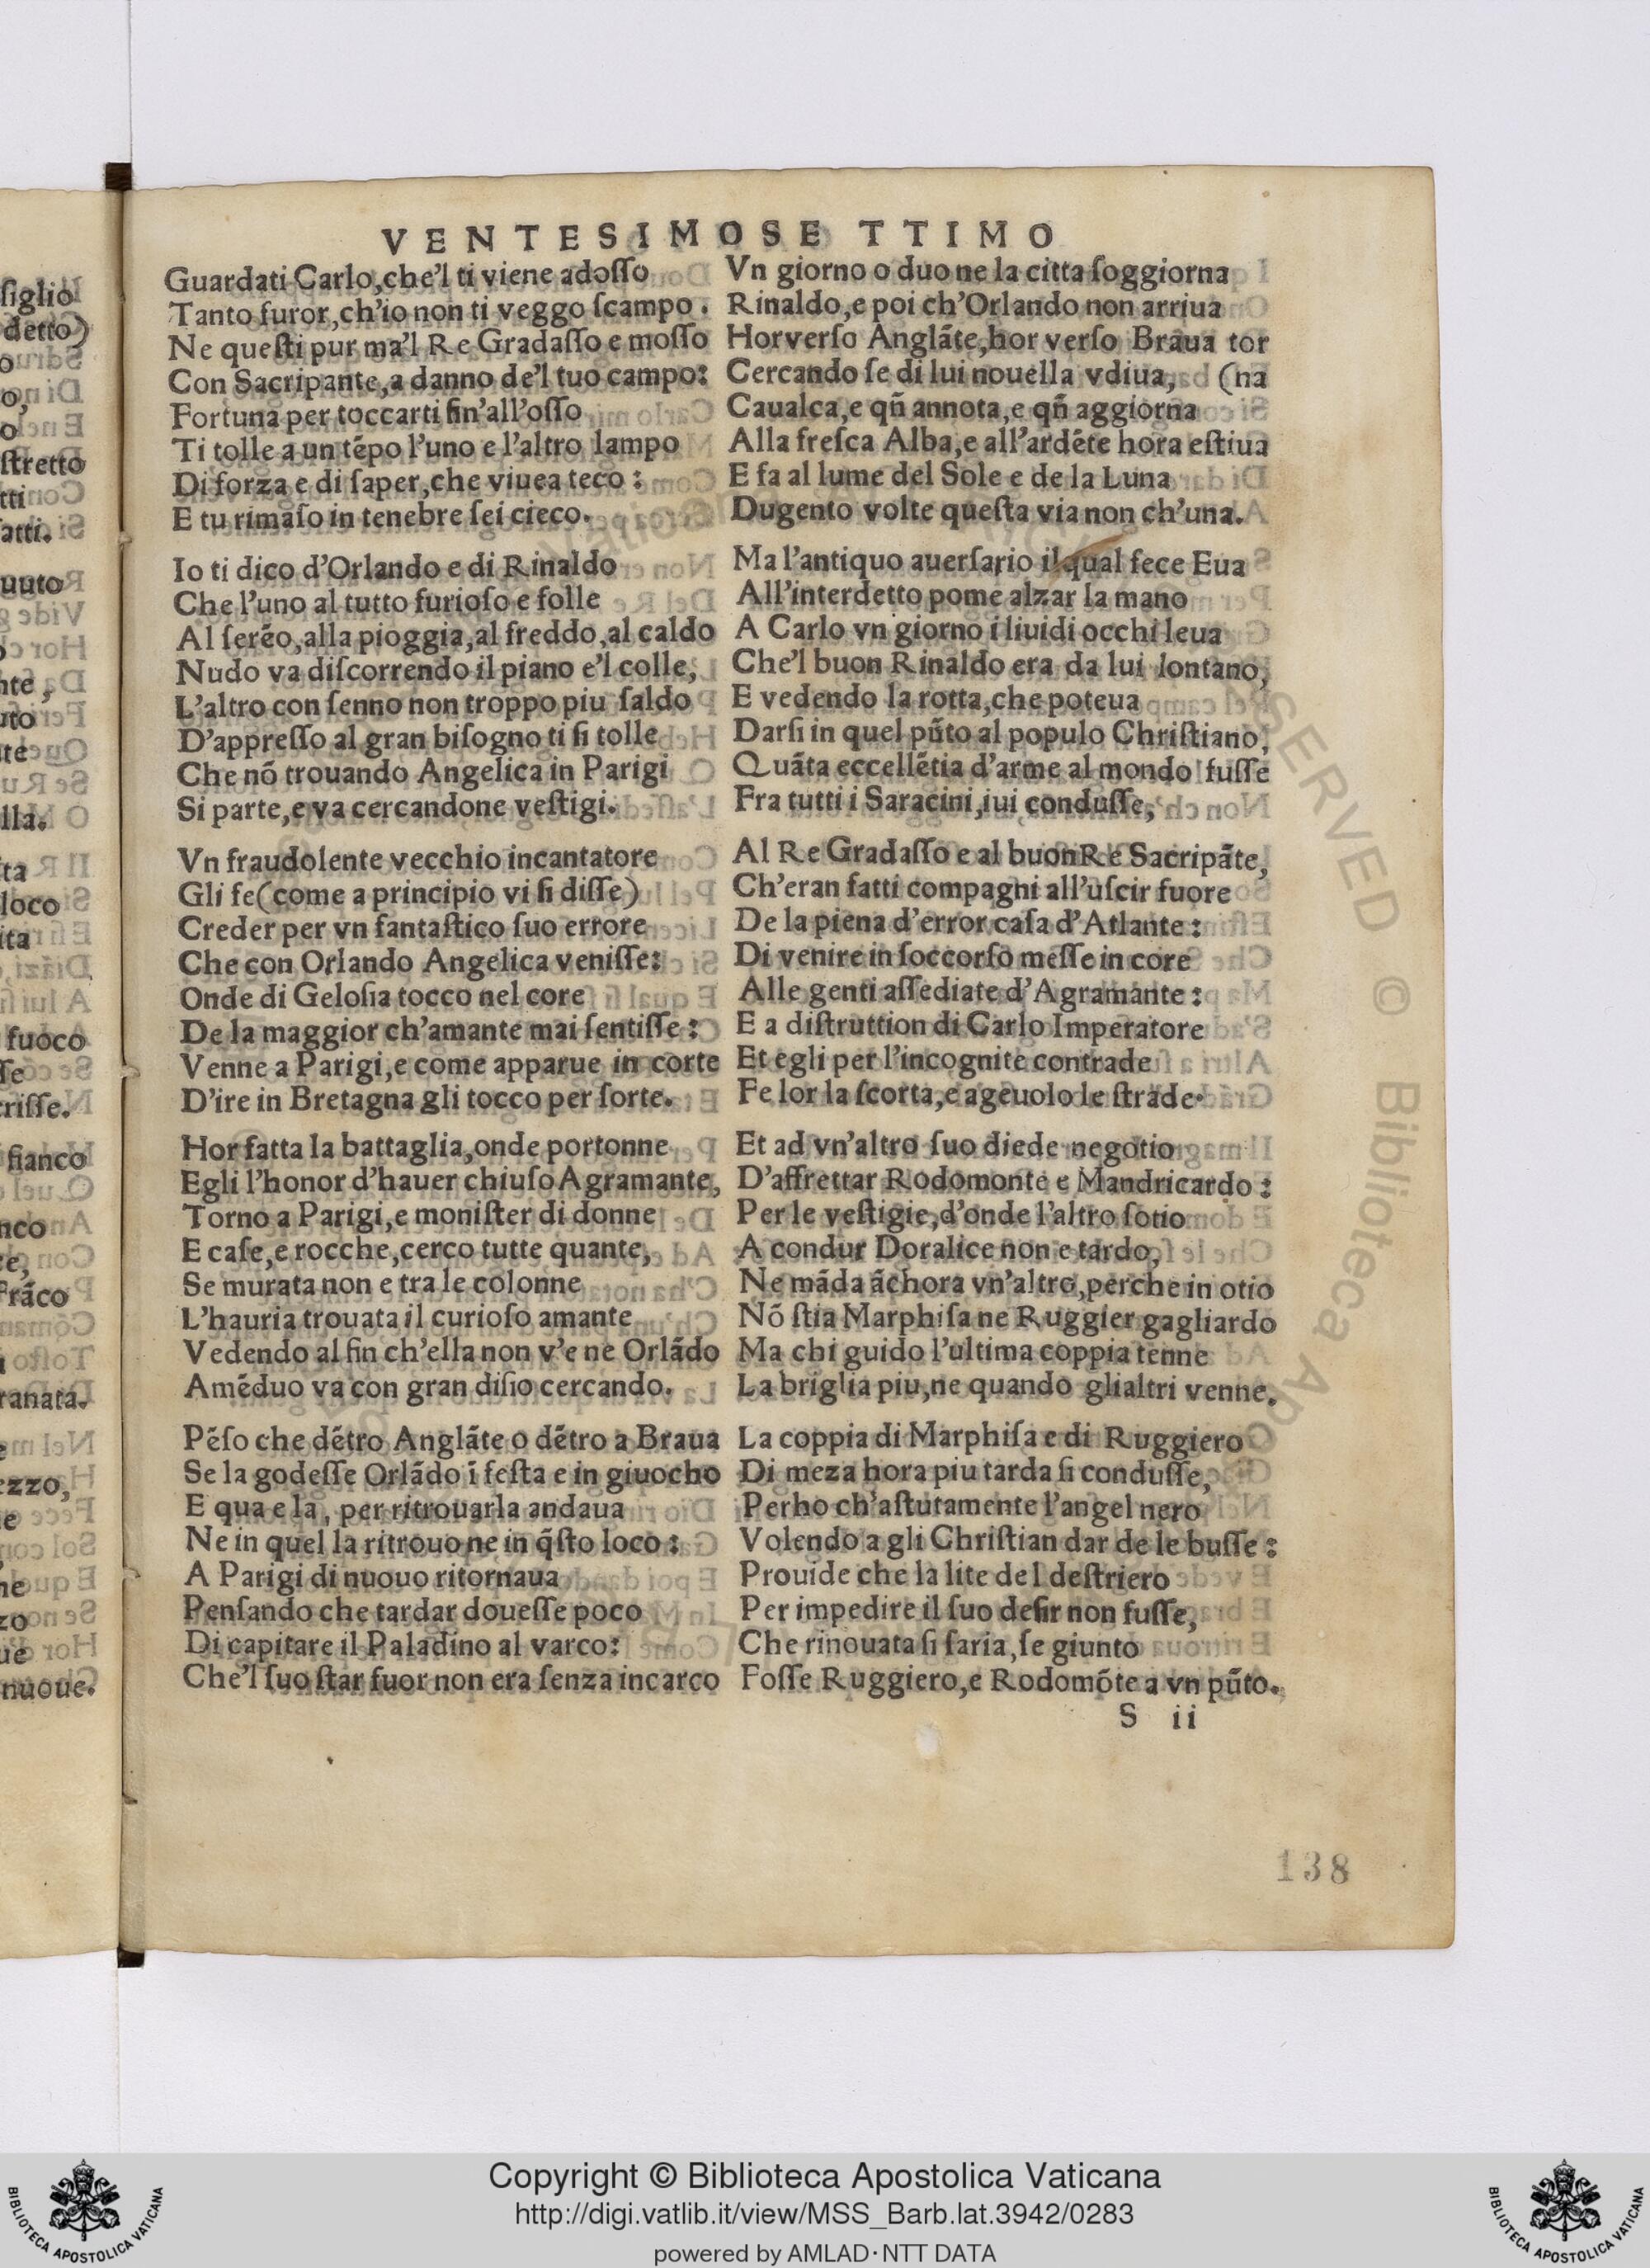 VENTESIMOSE TTIMO
Guardati Carlo,che'l ti viene adoſſo
Tanto furor,ch'io non ti veggo ſcampo.
Ne queſti pur ma'l Re Gradaſſo e moſſo
Con Sacripante,a danno de'l tuo campo:
Fortuna per toccarti fin'all'oſſo
Ti tolle a un tēpo l'uno e l'altro lampo
Di forza e di ſaper,che viuea teco:
E tu rimaſo in tenebre ſei cieco.
Io ti dico d'Orlando e di Rinaldo
Che l'uno al tutto furioſo e folle
Al ſerēo,alla pioggia,al freddo,al caldo
Nudo va diſcorrendo il piano e'l colle,
L'altro con ſenno non troppo piu ſaldo
D'appreſſo al gran biſogno ti ſi tolle
Che nō trouando Angelica in Parigi
Si parte,e va cercandone veſtigi.
Vn fraudolente vecchio incantatore
Gli fe(come a principio vi ſi diſſe)
Creder per vn fantaſtico ſuo errore
Che con Orlando Angelica veniſſe:
Onde di Geloſia tocco nel core
De la maggior ch'amante mai ſentiſſe:
Venne a Parigi,e come apparue in corte
D'ire in Bretagna gli tocco per ſorte.
Hor fatta la battaglia,onde portonne
Egli l'honor d'hauer chiuſo Agramante,
Torno a Parigi,e moniſter di donne
E caſe,e rocche,cerco tutte quante,
Se murata non e tra le colonne
L'hauria trouata il curioſo amante
Vedendo al fin ch'ella non v'e ne Orlādo
Amēduo va con gran diſio cercando.
Pēſo che dētro Anglāte o dētro a Braua
Se la godeſſe Orlādo ī feſta e in giuocho
E qua e la, per ritrouarla andaua
Ne in quel la ritrouo ne in q̄ſto loco:
A Parigi di nuouo ritornaua
Penſando che tardar doueſſe poco
Di capitare il Paladino al varco:
Che'l ſuo ſtar fuor non era ſenza incarco
Vn giorno o duo ne la citta ſoggiorna
Rinaldo,e poi ch'Orlando non arriua
Horverſo Anglāte,hor verſo Braua tor
Cercando ſe di lui nouella vdiua, (na
Caualca,e qn̄ annota,e qn̄ aggiorna
Alla freſca Alba,e all'ardēte hora eſtiua
E fa al lume del Sole e de la Luna
Dugento volte queſta via non ch'una.
Ma l'antiquo auerſario il qual fece Eua
All'interdetto pome alzar la mano
A Carlo vn giorno i liuidi occhi leua
Che'l buon Rinaldo era da lui lontano,
E vedendo la rotta,che poteua
Darſi in quel pūto al populo Chriſtiano,
Quāta eccellētia d'arme al mondo fuſſe
Fra tutti i Saracini,iui conduſſe,
Al Re Gradaſſo e al buonRe Sacripāte,
Ch'eran fatti compagni all'uſcir fuore
De la piena d'error caſa d'Atlante:
Di venire in ſoccorſo meſſe in core
Alle genti aſſediate d'Agramante:
E a diſtruttion di Carlo Imperatore
Et egli per l'incognite contrade
Fe lor la ſcorta,e ageuolo le ſtrade.
Et ad vn'altro ſuo diede negotio
D'affrettar Rodomonte e Mandricardo:
Per le veſtigie,d'onde l'altro ſotio
A condur Doralice non e tardo,
Ne māda āchora vn'altro,perche in otio
Nō ſtia Marphiſa ne Ruggier gagliardo
Ma chi guido l'ultima coppia tenne
La briglia piu,ne quando glialtri venne.
La coppia di Marphiſa e di Ruggiero
Di meza hora piu tarda ſi conduſſe,
Perho ch'aſtutamente l'angel nero
Volendo a gli Chriſtian dar de le buſſe:
Prouide che la lite del deſtriero
Per impedire il ſuo deſir non fuſſe,
Che rinouata ſi ſaria,ſe giunto
Foſſe Ruggiero,e Rodomōte a vn pūto.
S ii
138
Copyright © Biblioteca Apostolica Vaticana
http://digi.vatlib.it/view/MSS_Barb.lat.3942/0283
powered by AMLAD·NTT DATA
BIBLIOTECA APOSTOLICA VATICANA
BIBLIOTECA APOSTOLICA VATICANA